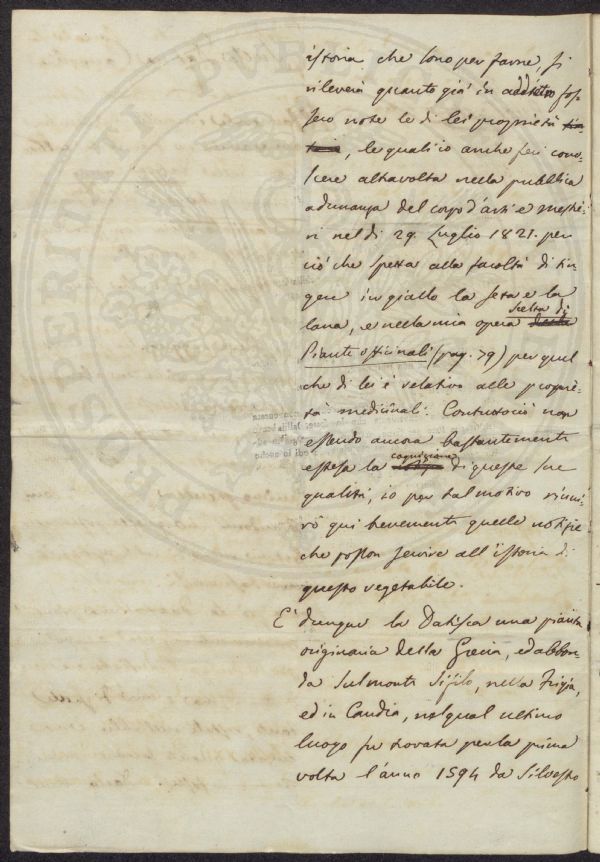 istoria che sono per farne, si
rileverà quanto già in addietro fos-
sero note le di lei proprietà tin-
torie, le quali io anche feci cono-
scere altravolta nella pubblica
adunanza del corpo d'arti e mestie-
ri nel dì 29. Luglio 1821. per
ciò che spetta alla facoltà di tin-
gere in giallo la seta e la
lana, e nella mia opera scelta di
Piante officinali (pag. 79) per quel
che di lei è relativo alle proprie-
tà medicinali. Contuttociò non
essendo ancora bastantemente
estesa la cognizione di queste sue
qualità, io per tal motivo riuni-
rò qui brevemente quelle notizie
che posson servire all'istoria di
questo vegetabile.
È dunque la Datisca una pianta
originaria della Grecia, ed abbon-
da sul monte Sipilo, nella Frigia,
ed in Candia, nel qual ultimo
luogo fu trovata per la prima
volta l'anno 1594 da Silvestro